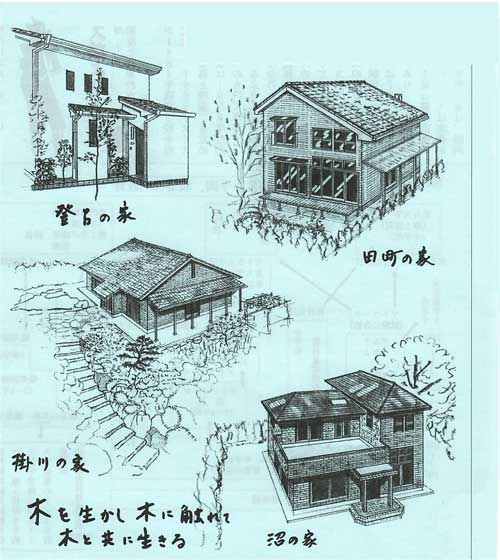 登呂の家
田町の家
掛川の家
木を生かし 木に触れて
木と共に生きる
沼の家